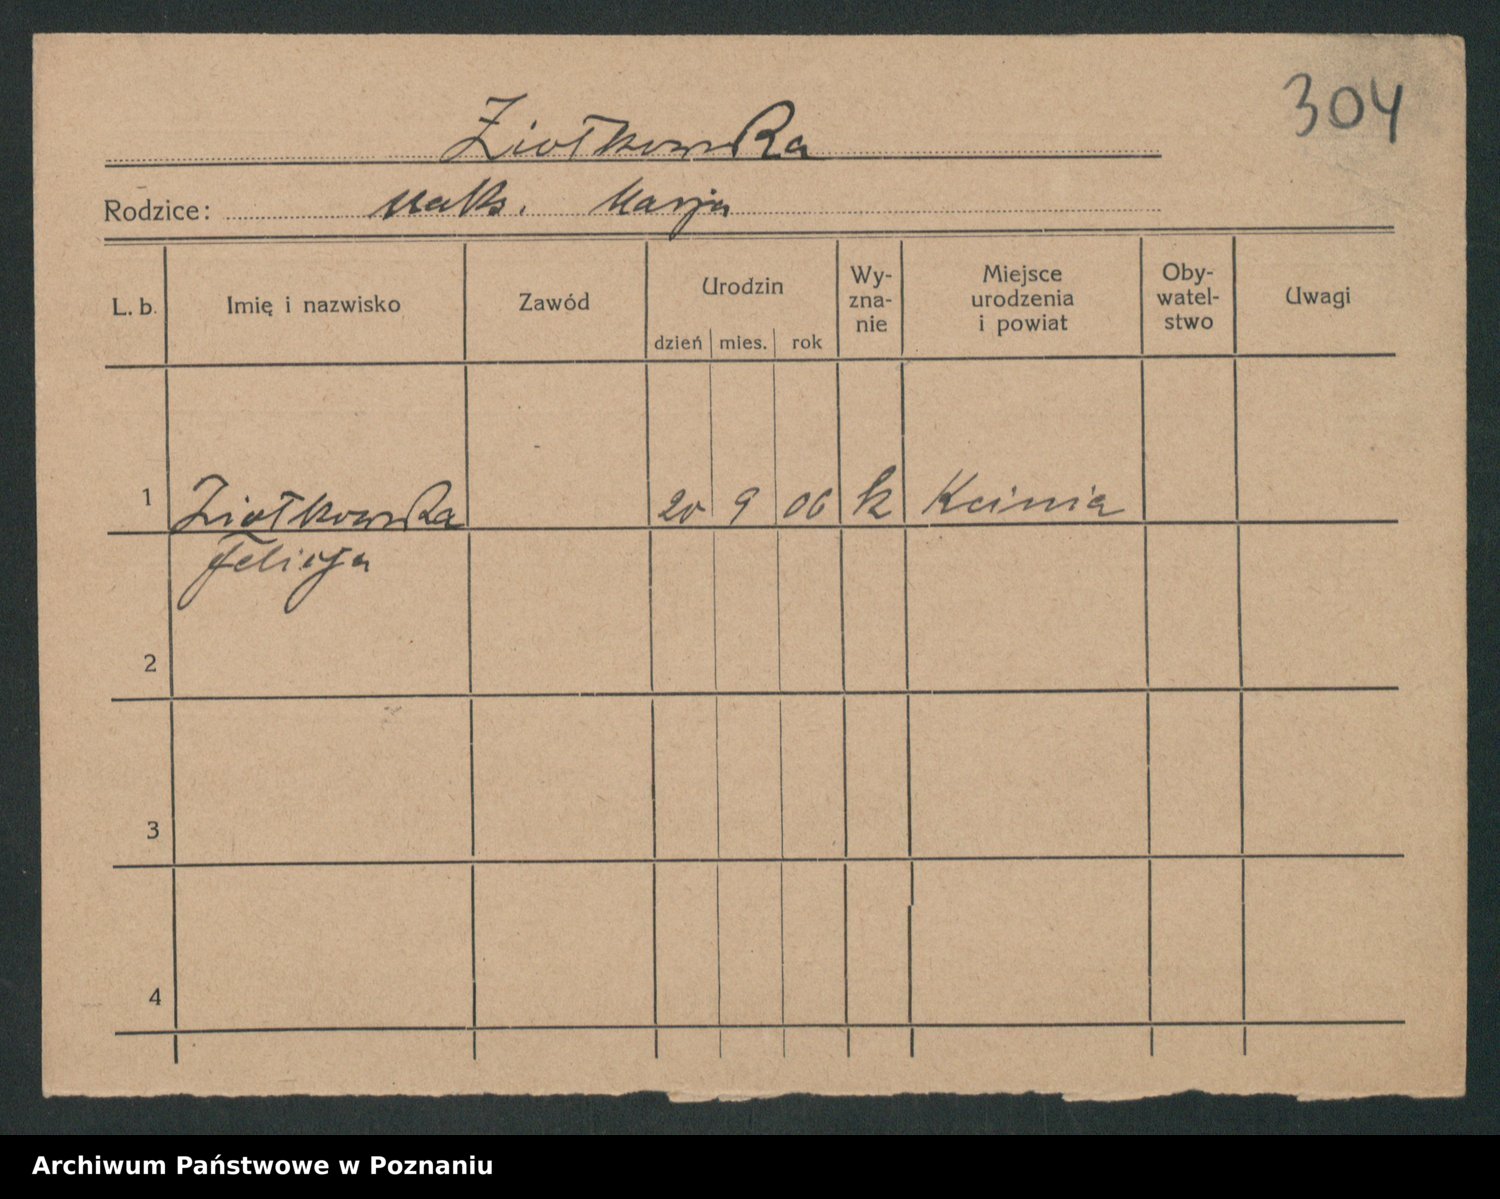 304
Ziołkowska
Rodzice: Maks. Marja
L. b. Imię i nazwisko Zawód Urodzin dzień mies. rok Wy-zna-nie Miejsce urodzenia i powiat Oby-watel-stwo Uwagi
1 Ziołkowska 20 9 06 k Kcinia
Felicja
2
3
4
Archiwum Państwowe w Poznaniu